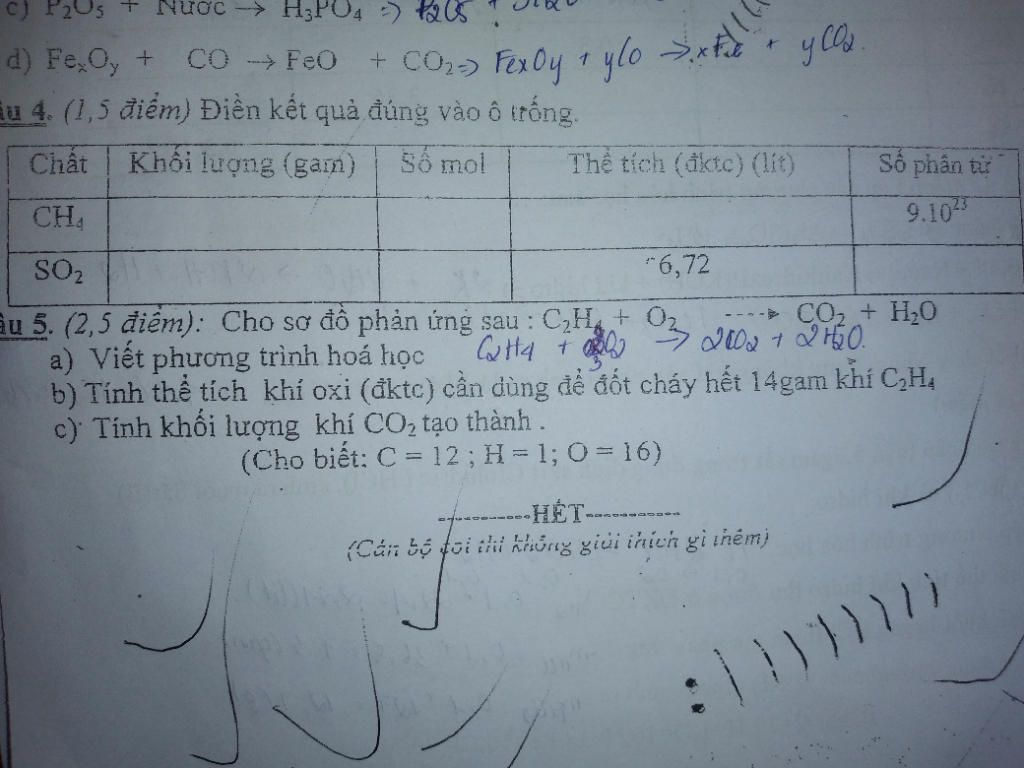 c) P₂O₅ + Nước → H₃PO₄ =>
d) FeₓOᵧ + CO → FeO + CO₂ => FexOy + yCO → xFe + yCO₂.
âu 4. (1,5 điểm) Điền kết quả đúng vào ô trống.
Chất Khối lượng (gam) Số mol Thể tích (đktc) (lít) Số phân tử
CH₄ 9.10²³
SO₂ 6,72
âu 5. (2,5 điểm): Cho sơ đồ phản ứng sau : C₂H₄ + O₂ ----> CO₂ + H₂O
C₂H₄ + 3O₂ → 2CO₂ + 2H₂O.
a) Viết phương trình hoá học
b) Tính thể tích khí oxi (đktc) cần dùng để đốt cháy hết 14gam khí C₂H₄
c) Tính khối lượng khí CO₂ tạo thành .
(Cho biết: C = 12 ; H = 1; O = 16)
-----------HẾT-----------
(Cán bộ coi thi không giải thích gì thêm)